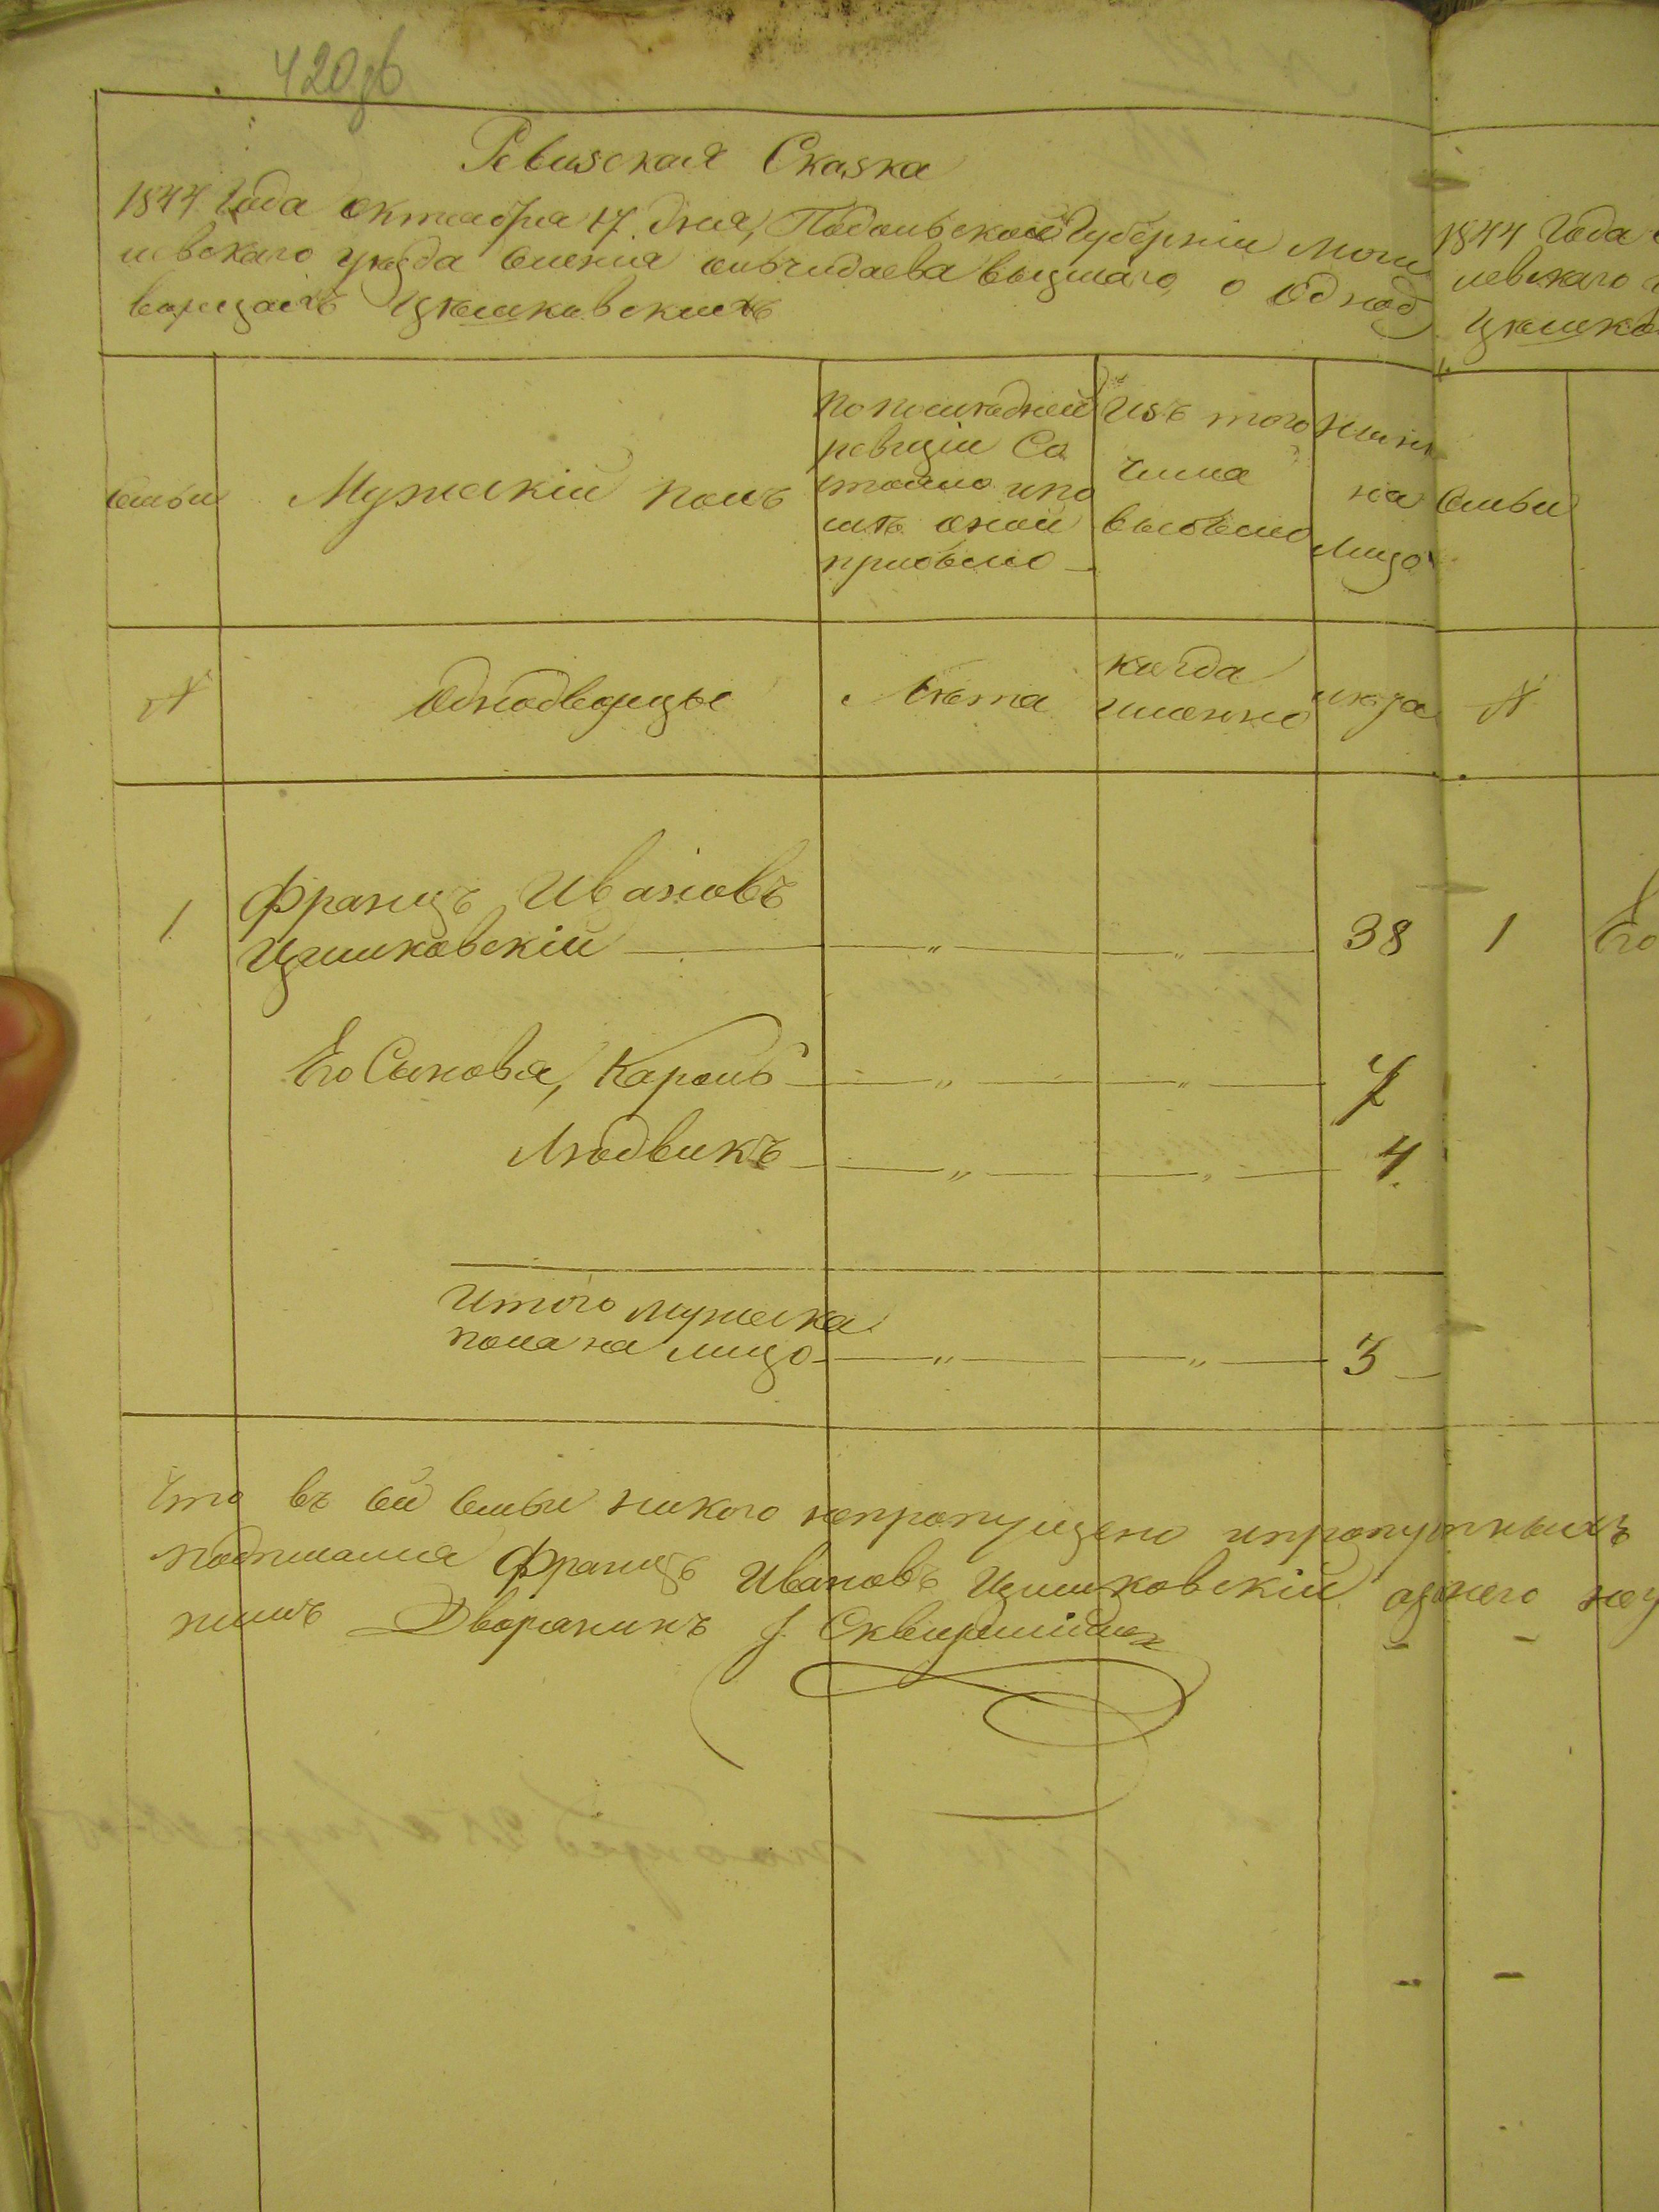 420об
Ревизская Сказка
1844 Года октября 17 дня, Подольской Губерніи Моги
левскаго уѣзда Селенія сывчидаева высшаго о Однод
ворцахъ Цѣшковскихъ
Семьи
Мужескій полъ
По послѣдней
ревизіи Со
стояло и по
слѣ оной
прибыло
Изъ того
числа
выбыло
Нынѣ
на
Лицо
№
Однодворцы
Лѣта
когда
именно
лѣта
1
Францъ Ивановъ
Цишковскій — „ — „ — 38
Его Сыновья, Кароль — „ — „ — 7
Людвикъ — „ — „ — 4.
Итого Мужеска
пола на лицо — „ — „ — 3
Что въ сей семьи никого непропущено ипропутныхъ
подписался Францъ Ивановъ Цишковскій аднего
Дворянинъ
1844 Года
левскаго
Цѣшко
Семьи
№
1 Его